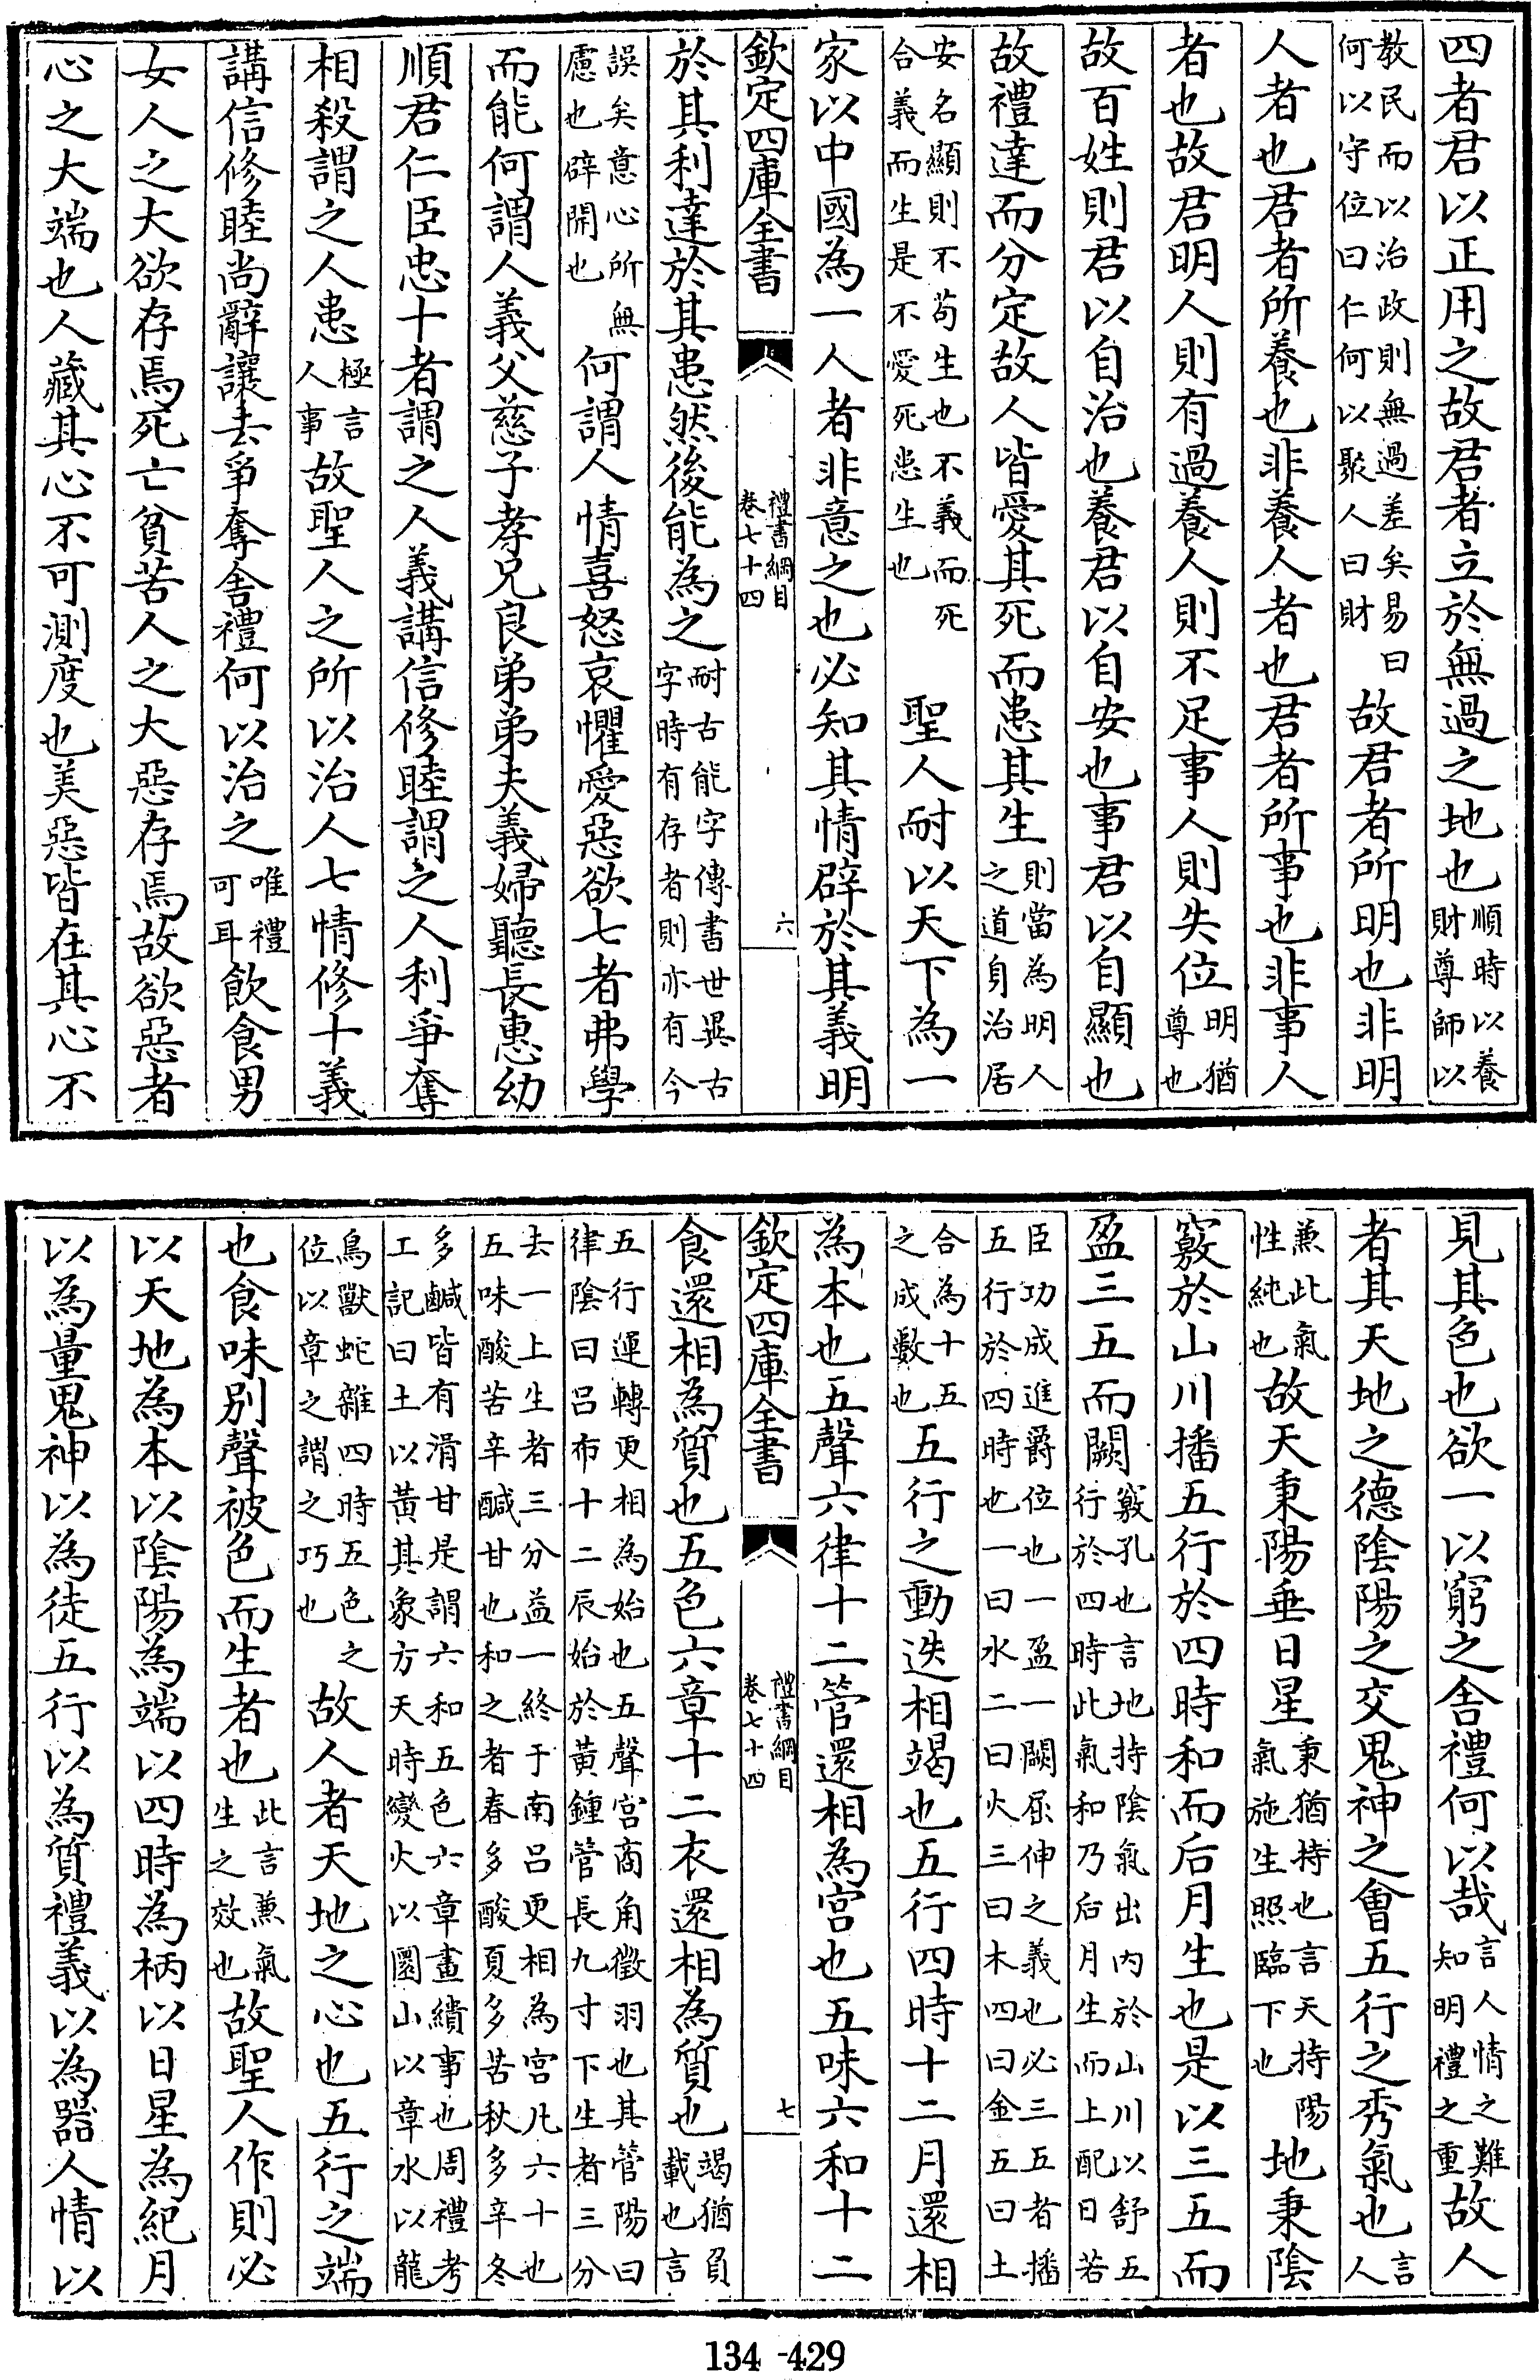 四者君以正用之故君者立於無過之地也順時以養財尊師以
教民而以治政則無過差矣易曰何以守位曰仁何以聚人曰財故君者所明也非明
人者也君者所養也非養人者也君者所事也非事人
者也故君明人則有過養人則不足事人則失位明猶尊也
故百姓則君以自治也養君以自安也事君以自顯也
故禮達而分定故人皆愛其死而患其生則當為明人之道身治居
安名顯則不苟生也不義而死合義而生是不愛死患生也聖人耐以天下為一
家以中國為一人者非意之也必知其情辟於其義明
欽定四庫全書
禮書綱目
卷七十四
六
於其利達於其患然後能為之耐古能字傳書世異古字時有存者則亦有今
誤矣意心所無慮也辟開也何謂人情喜怒哀懼愛惡欲七者弗學
而能何謂人義父慈子孝兄良弟弟夫義婦聽長惠幼
順君仁臣忠十者謂之人義講信修睦謂之人利爭奪
相殺謂之人患極言人事故聖人之所以治人七情修十義
講信修睦尚辭讓去爭奪舍禮何以治之唯禮可耳飲食男
女人之大欲存焉死亡貧苦人之大惡存焉故欲惡者
心之大端也人藏其心不可測度也美惡皆在其心不
見其色也欲一以窮之舍禮何以哉言人情之難知明禮之重故人
者其天地之德陰陽之交鬼神之會五行之秀氣也言人
兼此氣性純也故天秉陽垂日星秉猶持也言天持陽氣施生照臨下也地秉陰
竅於山川播五行於四時和而后月生也是以三五而
盈三五而闕竅孔也言地持陰氣出内於山川以舒五行於四時此氣和乃后月生而上配日若
臣功成進爵位也一盈一闕屈伸之義也必三五者播五行於四時也一曰水二曰火三曰木四曰金五曰土
合為十五之成數也五行之動迭相竭也五行四時十二月還相
為本也五聲六律十二管還相為宫也五味六和十二
欽定四庫全書
禮書綱目
卷七十四
七
食還相為質也五色六章十二衣還相為質也竭猶負載也言
五行運轉更相為始也五聲宫商角徵羽也其管陽曰律陰曰吕布十二辰始於黃鍾管長九寸下生者三分
去一上生者三分益一終于南吕更相為宫凡六十也五味酸苦辛鹹甘也和之者春多酸夏多苦秋多辛冬
多鹹皆有滑甘是謂六和五色六章畫繢事也周禮考工記曰土以黃其象方天時變火以圜山以章水以龍
鳥獸蛇雜四時五色之位以章之謂之巧也故人者天地之心也五行之端
也食味別聲被色而生者也此言兼氣生之效也故聖人作則必
以天地為本以陰陽為端以四時為柄以日星為紀月
以為量鬼神以為徒五行以為質禮義以為器人情以
134-429